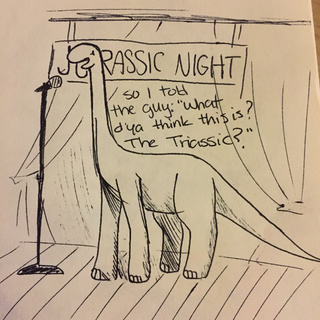 JURASSIC NIGHT
so I told
the guy: "What
d'ya think this is?
The Triassic?"